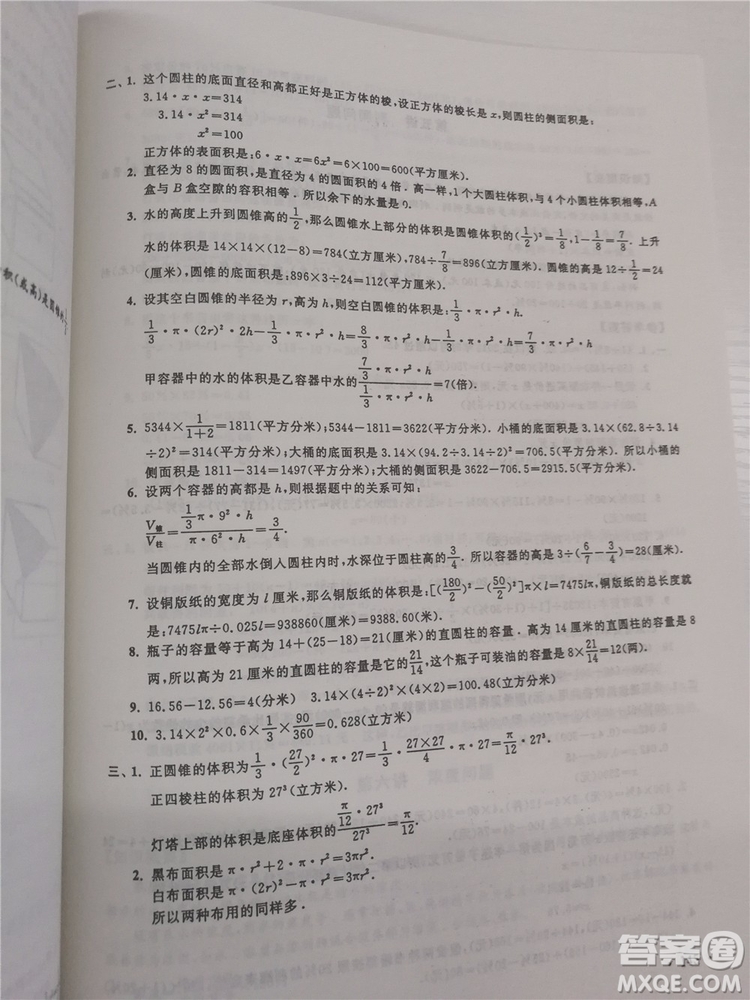 二、1. 这个圆柱的底面直径和高都正好是正方体的棱,设正方体的棱长是 x,则圆柱的侧面积是:
3.14·x·x=314
3.14·x²=314
x²=100
正方体的表面积是:6·x·x=6x²=6×100=600(平方厘米).
2. 直径为8的圆面积,是直径为4的圆面积的4倍.高一样,1个大圆柱体积,与4个小圆柱体积相等,A
盒与 B 盒空隙的容积相等.所以余下的水量是0.
3. 水的高度上升到圆锥高的1/2,那么圆锥水上部分的体积是圆锥体积的(1/2)³=1/8,1−1/8=7/8.上升
水的体积是14×14×(12−8)=784(立方厘米),784÷7/8=896(立方厘米).圆锥的高是12÷1/2=24
(厘米),圆锥的底面积是:896×3÷24=112(平方厘米).
4. 设其空白圆锥的半径为 r,高为 h,则空白圆锥的体积是:1/3·π·r²·h.
1/3·π·(2r)²·2h−1/3·π·r²·h=8/3·π·r²·h−1/3·π·r²·h=7/3·π·r²·h
甲容器中的水的体积是乙容器中水的(7/3·π·r²·h)/(1/3·π·r²·h)=7(倍).
5. 5344×1/(1+2)=1811(平方分米);5344−1811=3622(平方分米).小桶的底面积是3.14×(62.8÷
3.14÷2)²=314(平方分米),大桶的底面积是3.14×(94.2÷3.14÷2)²=706.5(平方分米).所以小桶的
侧面积是1811−314=1497(平方分米),大桶的侧面积是3622−706.5=2915.5(平方分米).
6. 设两个容器的高都是 h,则根据题中的关系可知:
V锥/V柱=(1/3π·9²·h)/(π·6²·h)=3/4.
当圆锥内的全部水倒入圆柱内时,水深位于圆柱高的3/4.所以容器的高是3÷(6/7−3/4)=28(厘米).
7. 设铜版纸的宽度为 l 厘米,那么铜版纸的体积是:[(180/2)²−(50/2)²]π×l=7475lπ,铜版纸的总长度就
是:7475lπ÷0.025l=938860(厘米)=9388.60(米).
8. 瓶子的容量等于高为14+(25−18)=21(厘米)的直圆柱的容量.高为14厘米的直圆柱的容量是8
两,所以高为21厘米的直圆柱的容量是它的21/14,这个瓶子可装油的容量是8×21/14=12(两).
9. 16.56−12.56=4(分米) 3.14×(4÷2)²×(4×2)=100.48(立方分米)
10. 3.14×2²×0.6×1/3×90/360=0.628(立方米)
三、1. 正圆锥的体积为1/3·(27/2)²·π·27=1/3·(27×27)/4·π·27=π/12·27³.
正四棱柱的体积为27³(立方米).
灯塔上部的体积是底座体积的(π/12·27³)/27³=π/12.
2. 黑布面积是π·r²+2·π·r²=3πr².
白布面积是π·(2r)²−π·r²=3πr².
所以两种布用的同样多.
答案圈
MXQE.COM